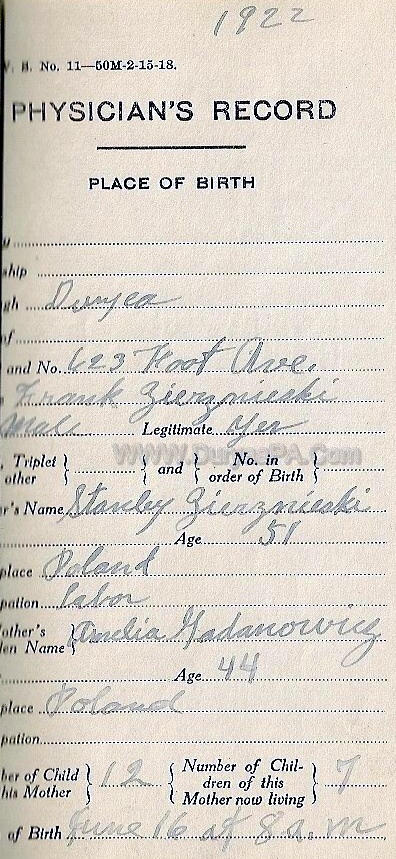 1922
V. S. No. 11—50M-2-15-18.
PHYSICIAN'S RECORD
PLACE OF BIRTH
y
ship
gh Duryea
of
and No. 623 Foot Ave.
Frank Zierznieski
Male Legitimate Yes
www.DuryeaPA.Com
, Triplet other } and { No. in order of Birth }
er's Name Stanley Zierznieski
Age 51
place Poland
pation labor
other's
en Name } Amelia Gadanowicz
Age 44
place Poland
pation
ber of Child his Mother } 12 { Number of Children of this Mother now living } 7
of Birth June 16 at 8 a.m